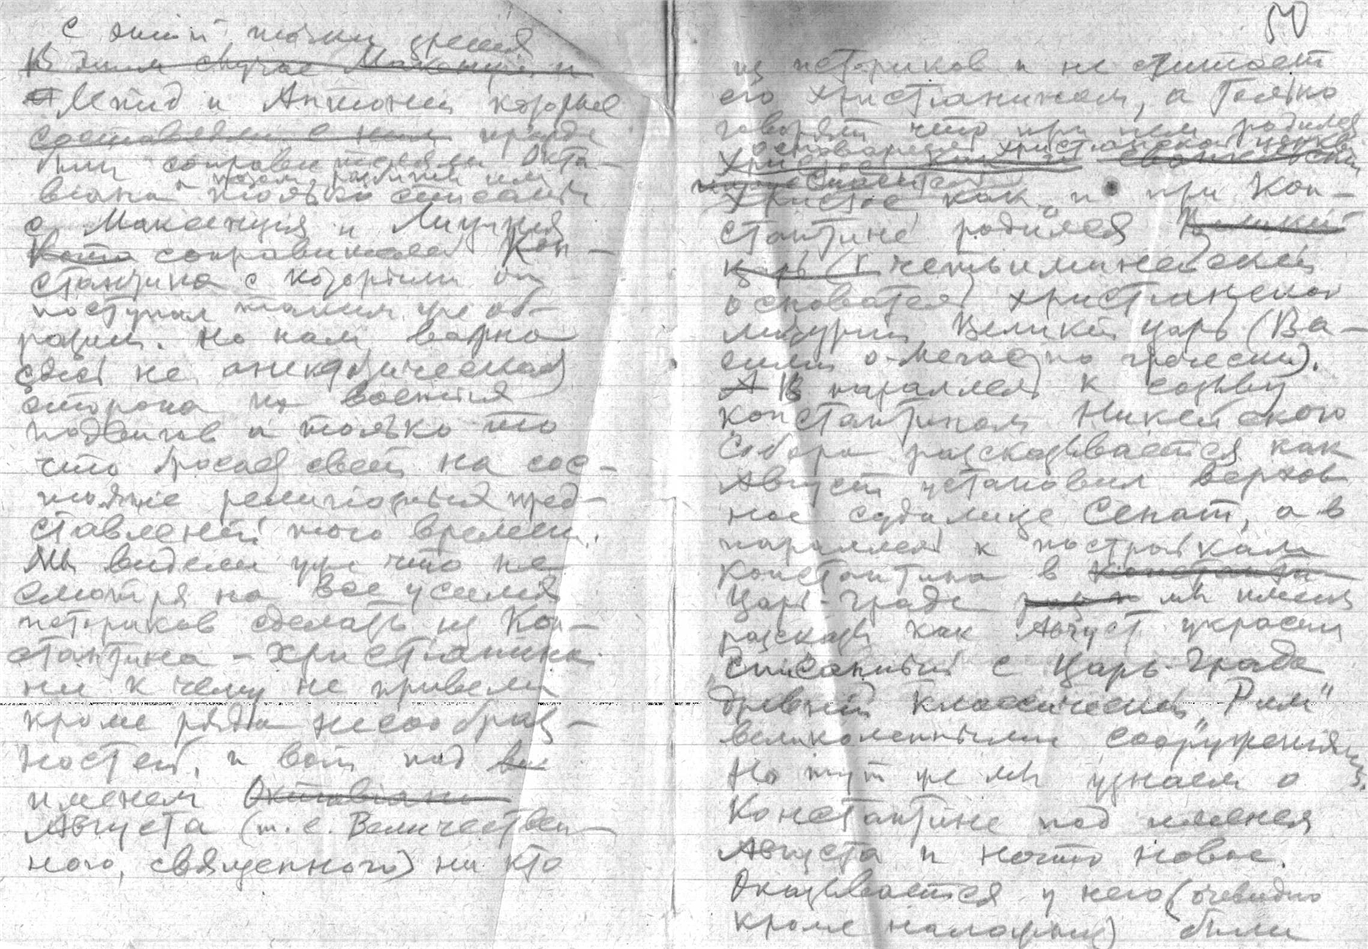 С этой точки зрения
В этом случае Максенций и
Лепид и Антоний которые
составляли с ним правда
были соправителями Окта-
виана и потом разбиты им
только списаны
с Максенция и Лициния
соправителей Кон-
стантина с которыми он
поступил таким же об-
разом. Но нам важна
здесь не анекдотическая
сторона и не военных
подвигов а только то
что бросает свет на сос-
тояние религиозных пред-
ставлений того времени.
Мы видели уже что не
смотря на все усилия
историков сделать из Кон-
стантина – христианина
ни к чему не привели
кроме ряда несообраз-
ностей, и вот под
именем Октавиана
Августа (т. е. Величествен-
ного, священного) ни кто
50
из историков и не считает
его христианином, а только
говорят что при нем родился
основатель христианской церкви
Христос как и при Кон-
стантине родился Великий
царь (т четьиминейский
основатель христианской
литургии Великий царь (Ва-
силий о-Мегас по гречески).
А В параллель к созыву
Константином Никейского
Собора рассказывается как
Август установил верхов
ное судилище Сенат, а в
параллель к постройкам
Константина в
Царь-Граде мы имеем
рассказы как Август украсил
списанный с Царь-Града
древний классический „Рим“
великолепными сооружениями.
Но тут же мы узнаем о
Константине под именем
Августа и нечто новое.
Оказывается у него (очевидно
кроме) были